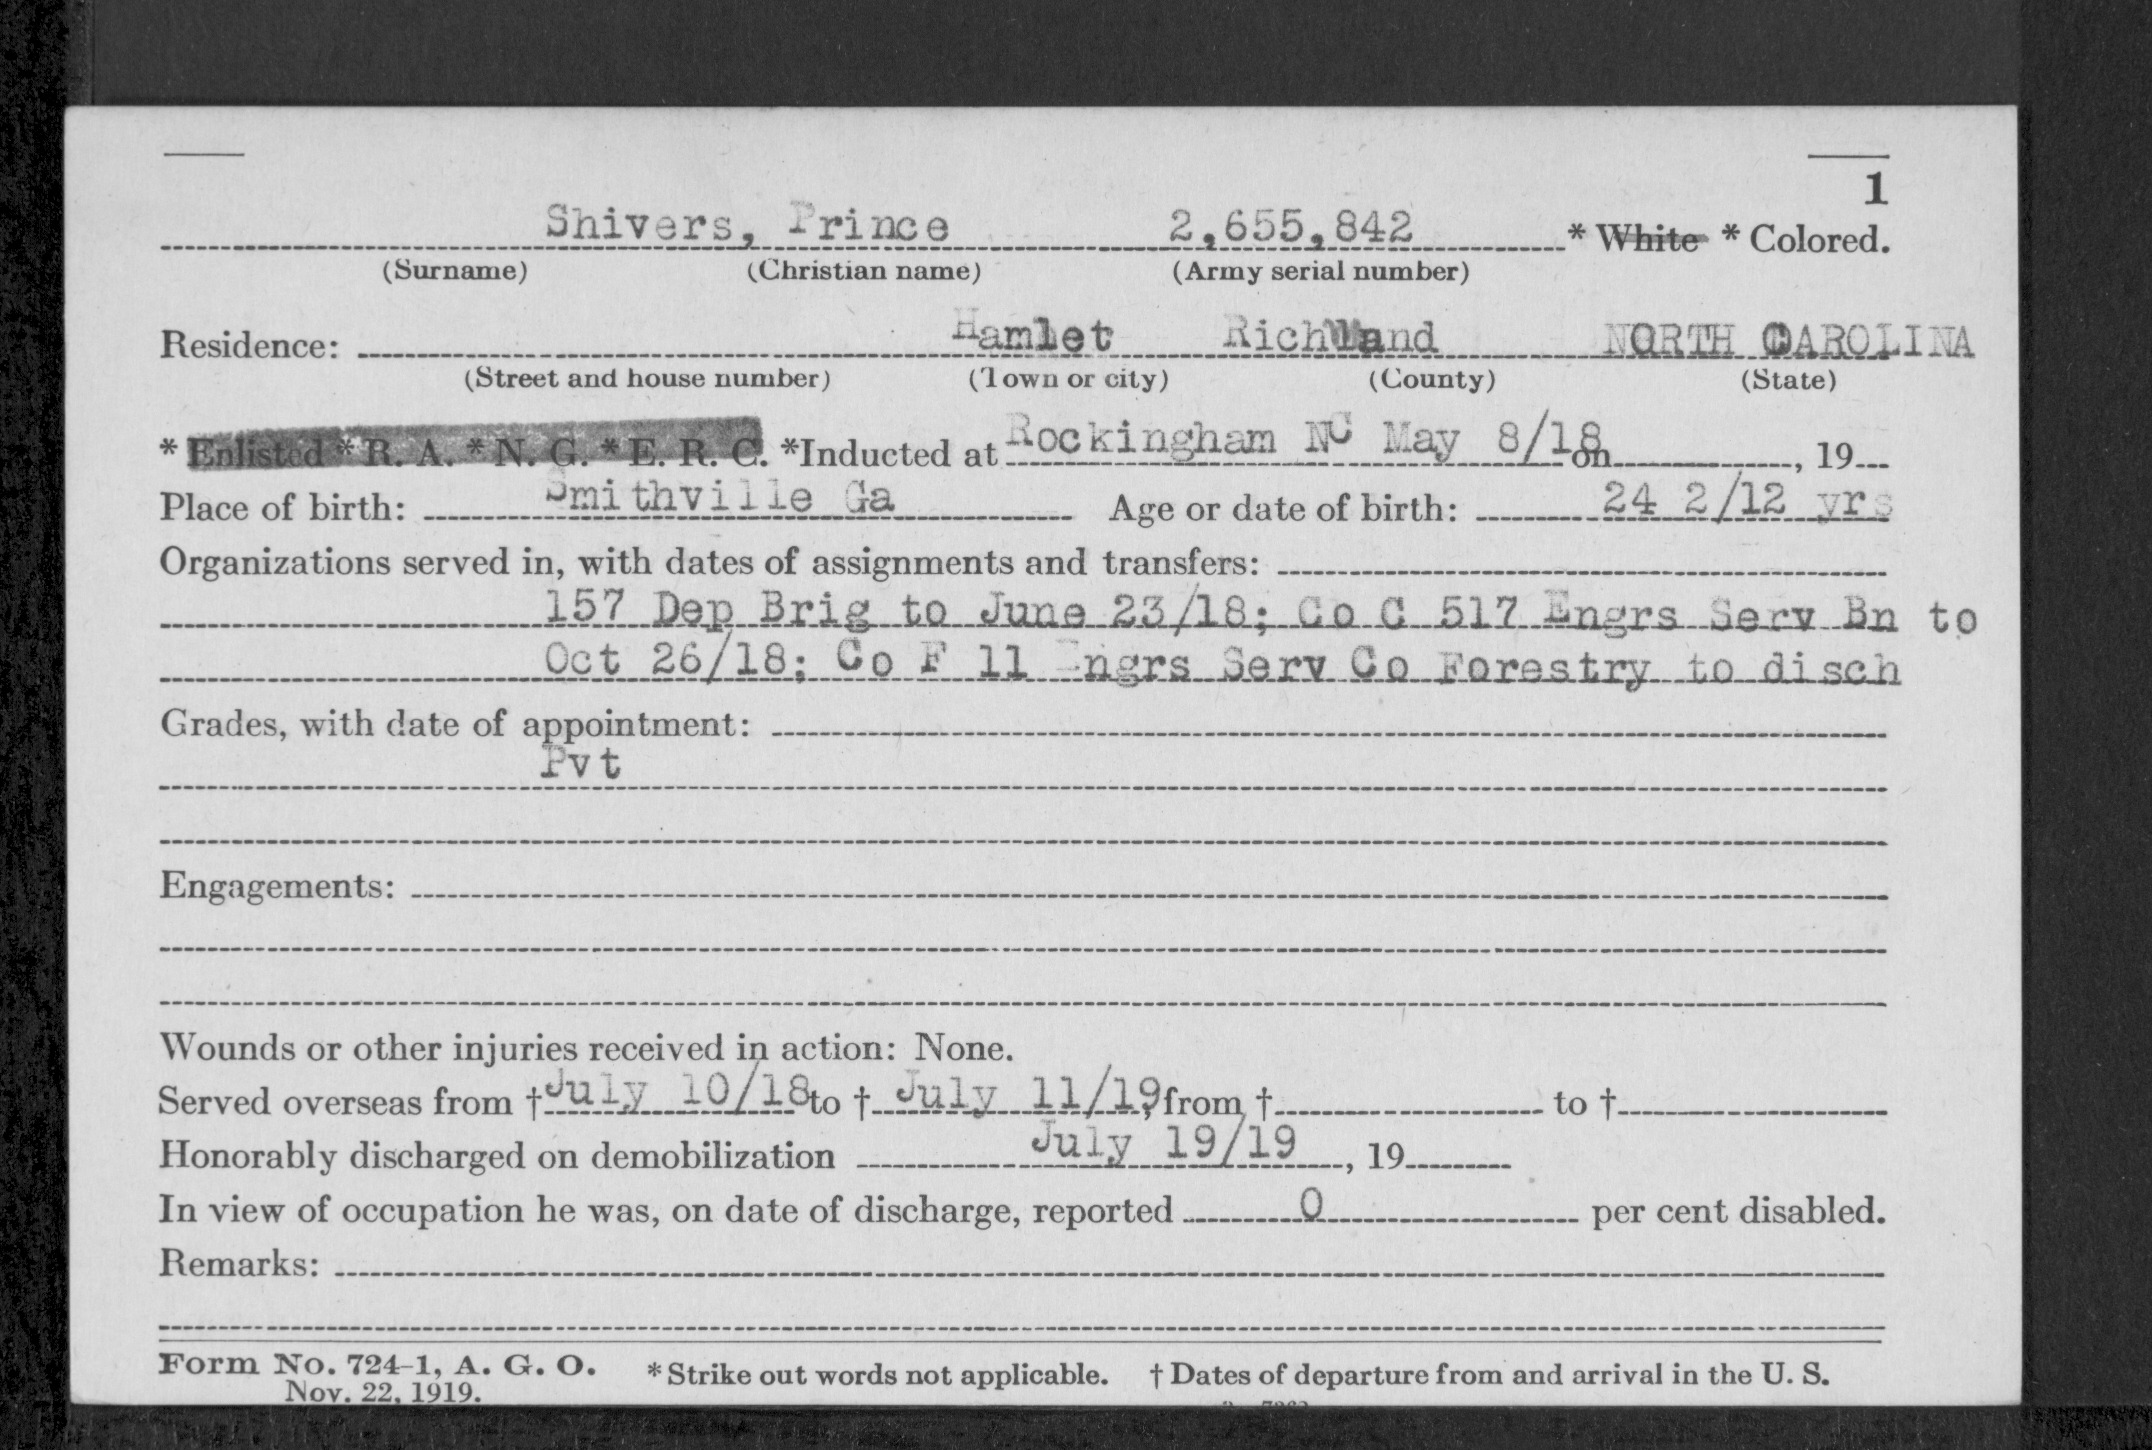 1
Shivers, Prince 2,655,842 * White * Colored.
(Surname) (Christian name) (Army serial number)
Hamlet Richland NORTH CAROLINA
Residence:
(Street and house number) (Town or city) (County) (State)
* Enlisted * R. A. * N. G. * E. R. C. *Inducted at Rockingham NC May 8/18 on , 19
Place of birth: Smithville Ga Age or date of birth: 24 2/12 yrs
Organizations served in, with dates of assignments and transfers:
157 Dep Brig to June 23/18; Co C 517 Engrs Serv Bn to
Oct 26/18; Co F 11 Engrs Serv Co Forestry to disch
Grades, with date of appointment:
Pvt
Engagements:
Wounds or other injuries received in action: None.
Served overseas from † July 10/18 to † July 11/19, from † to †
Honorably discharged on demobilization July 19/19, 19
In view of occupation he was, on date of discharge, reported 0 per cent disabled.
Remarks:
Form No. 724-1, A. G. O. * Strike out words not applicable. † Dates of departure from and arrival in the U. S.
Nov. 22, 1919.